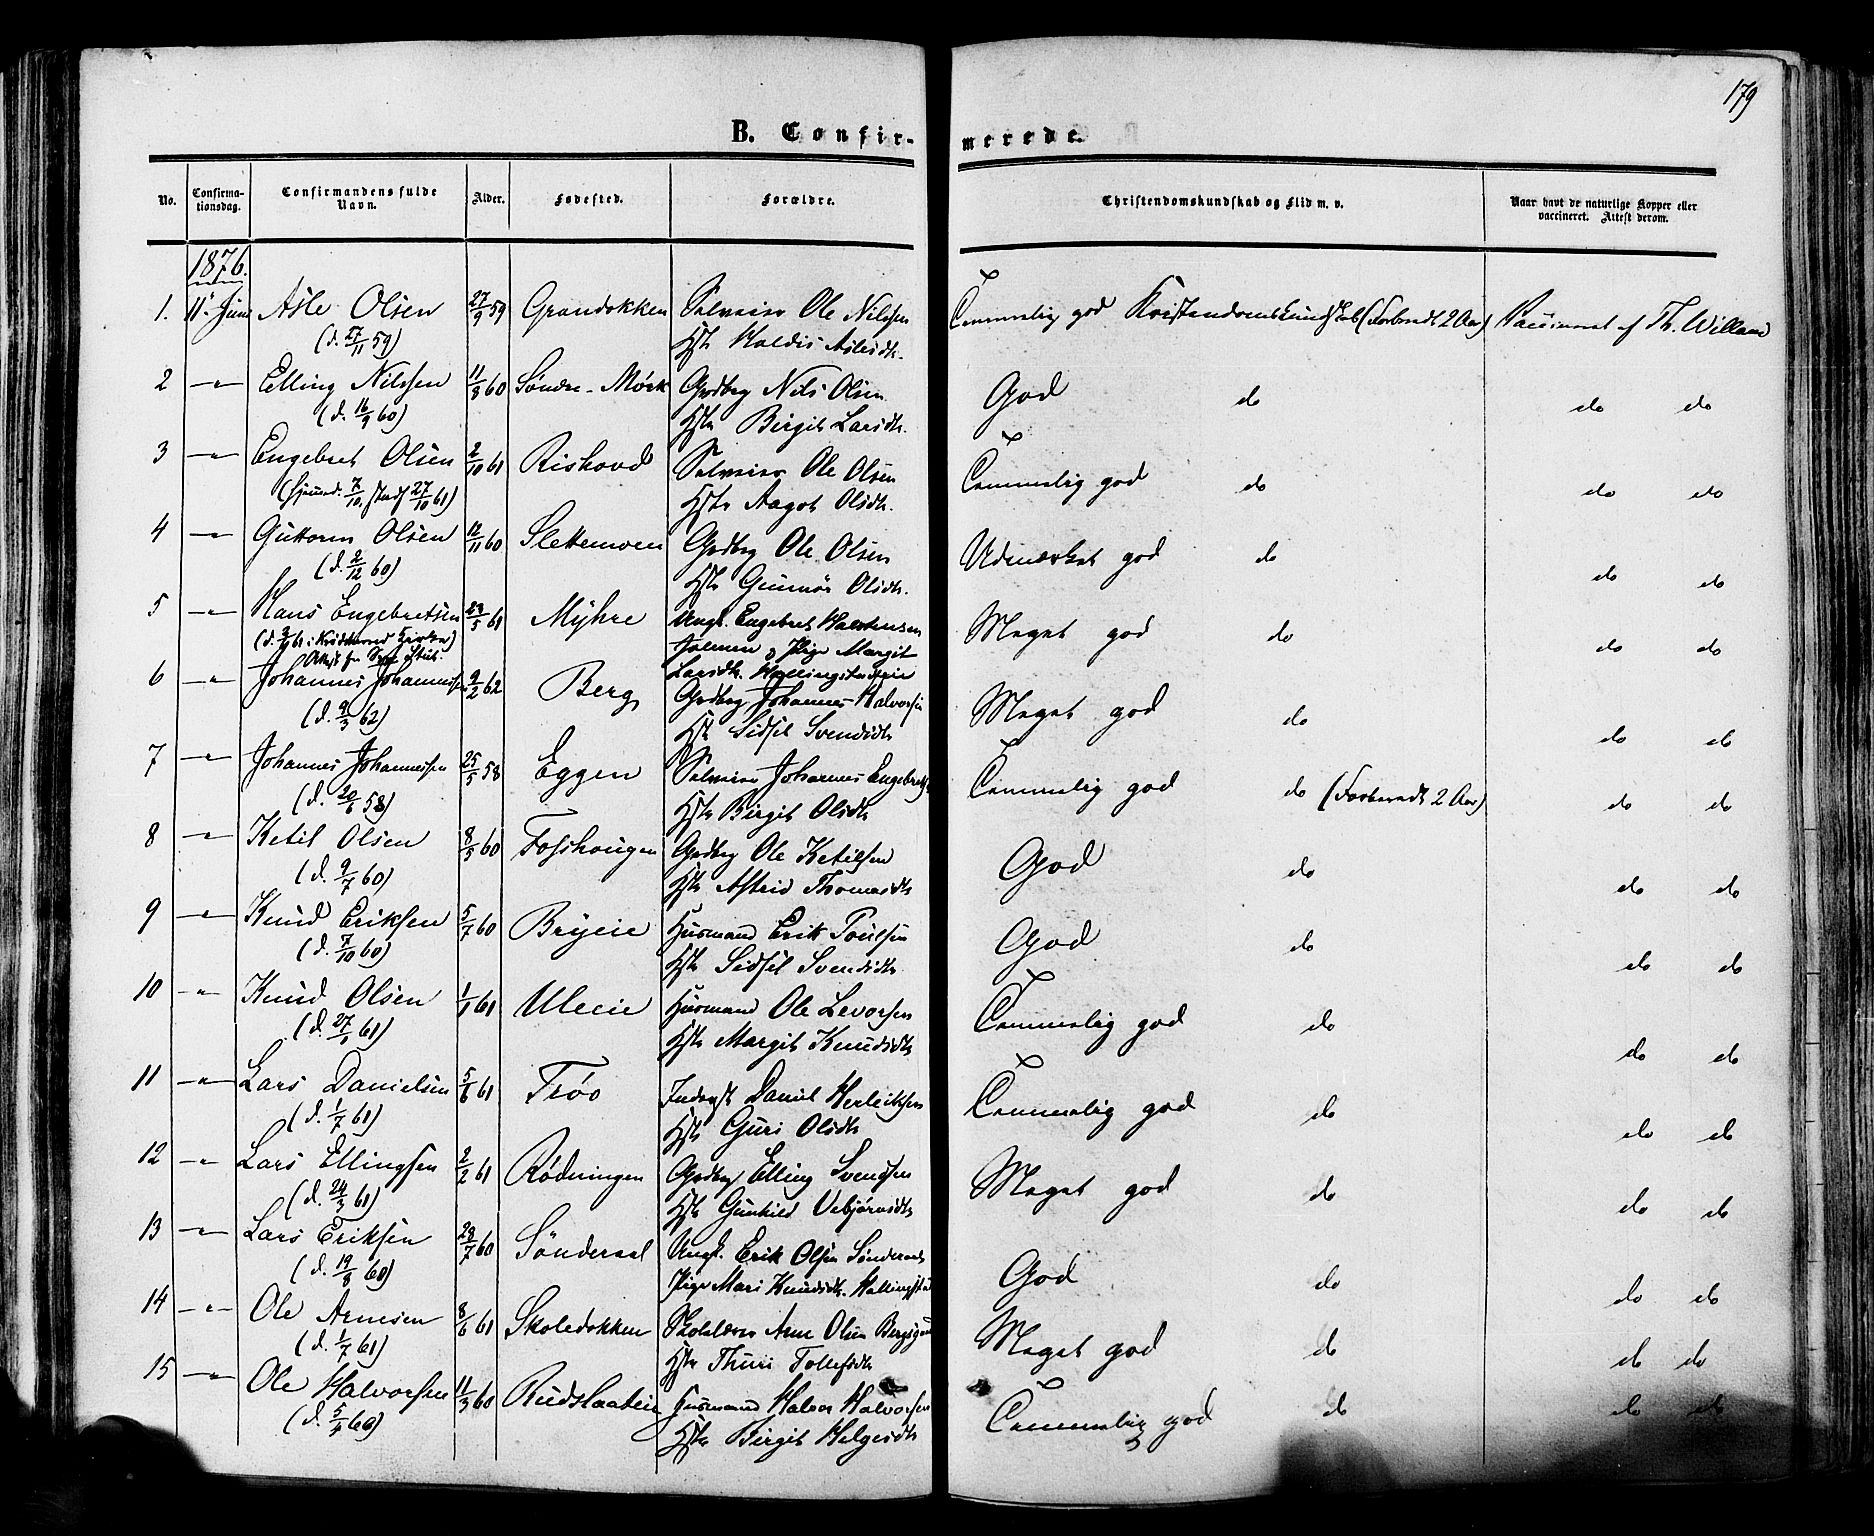 179
B. Confirmerede.
No. Confirmationsdag. Confirmandens fulde Navn. Alder. Fødested. Forældre. Christendomskundskab og Flid m. v. Naar havt de naturlige Kopper eller vaccineret. Attest derom.
1876.
1. 11' Juni Asle Olsen 27/9 59 Grandokken Selveier Ole Nilssen Temmelig god Kristendomskundskab (Forberedt 2 Aar) Vaccineret af Th. Willand
(d. 27/11 59) Hst. Haldis Aslesdtr.
2 -"- Elling Nilssen 11/3 60 Søndre-Mørk Grdbrg Nils Olsen God do do do
(d. 16/9 60) Hstr Birgit Larsdtr.
3 -"- Engebret Olsen 2/10 61 Rishovd Selveier Ole Olsen Temmelig god do do do
(hjemmed. 7/10, stadf 27/10 61) Hstr Aagot Olsdtr.
4 -"- Guttorm Olsen 12/11 60 Slettemoen Grdbrg Ole Olsen Udmærket god do do do
(d. 2/12 60) Hstr Gunnør Olsdtr.
5 -"- Hans Engebretsen 23/5 61 Myhre Ungk. Engebret Halstensen Meget god do do do
Pige Margit
Larsdtr.
6 -"- Johannes Johannessen 9/2 62 Berg Grdbrg Johannes Halvorsen Meget god do do do
(d. 9/3 62) Hst Sidsel Svendsdtr
7 -"- Johannes Johannessen 25/5 58 Eggen Selveier Johannes Engebrets. Temmelig god do (Forberedt 2 Aar) do do
(d. 20/6 58) Hstr Birgit Olsdtr
8 -"- Ketil Olsen 8/5 60 Fosshougen Grdbrg Ole Ketilsen God do do do
(d. 9/7 60) Hstr Astrid Thomasdtr
9 -"- Knud Eriksen 5/7 60 Bryeie Husmand Erik Poulsen God do do do
(d. 7/10 60) Hst Sidsel Svendsdtr
10 -"- Knud Olsen 1/1 61 Uleeie Husmand Ole Levorsen Temmelig god do do do
(d. 27/1 61) Hstr Margit Knudsdtr
11 -"- Lars Danielsen 5/6 61 Trøo Inderst Daniel Herleiksen Temmelig god do do do
(d. 1/7 61) Hstr Guri Olsdtr
12 -"- Lars Ellingsen 2/2 61 Rødningen Grdbrg Elling Svendsen Meget god do do do
(d. 24/3 61) Hst Gunhild Vebjørnsdtr
13 -"- Lars Eriksen 28/7 60 Sønderaal Ungk. Erik Olsen Sønderaal God do do do
(d. 19/8 60) Pige Mari Knudsdtr. Hallingstad
14 -"- Ole Arnesen 8/6 61 Skoledokken Skolelærer Arne Olsen Meget god do do do
(d. 1/7 61) Hstr Thuri Tollefsdtr
15 -"- Ole Halvorsen 11/3 60 Rudslaateie Husmand Halvor Halvorsen Temmelig god do do do
(d. 5/4 60) Hstr Birgit Helgesdtr